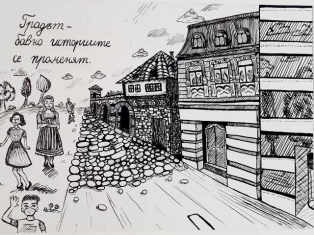 Градът-
бавно историите
се променят.